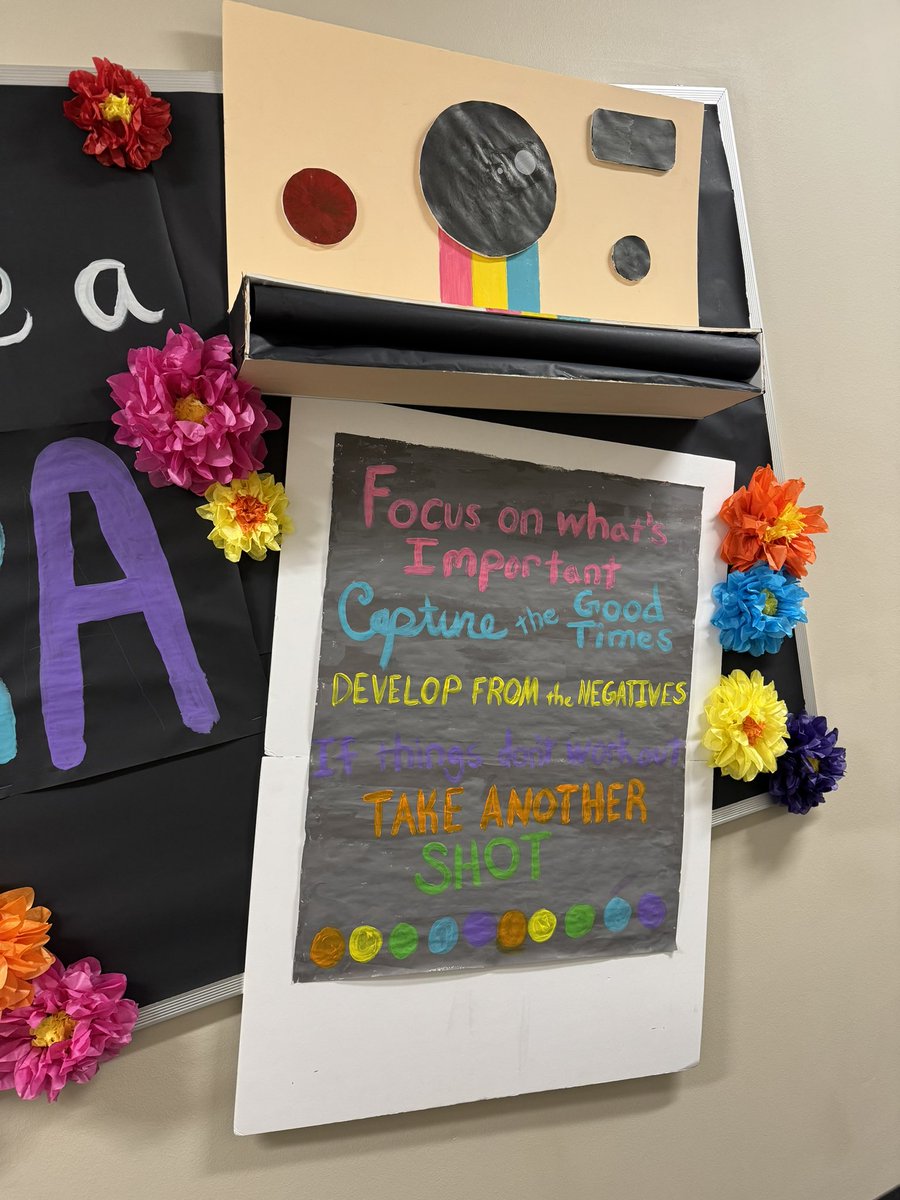 ea
A
Focus on what's
Important
Capture the Good
Times
DEVELOP FROM the NEGATIVES
IF things don't workout
TAKE ANOTHER
SHOT